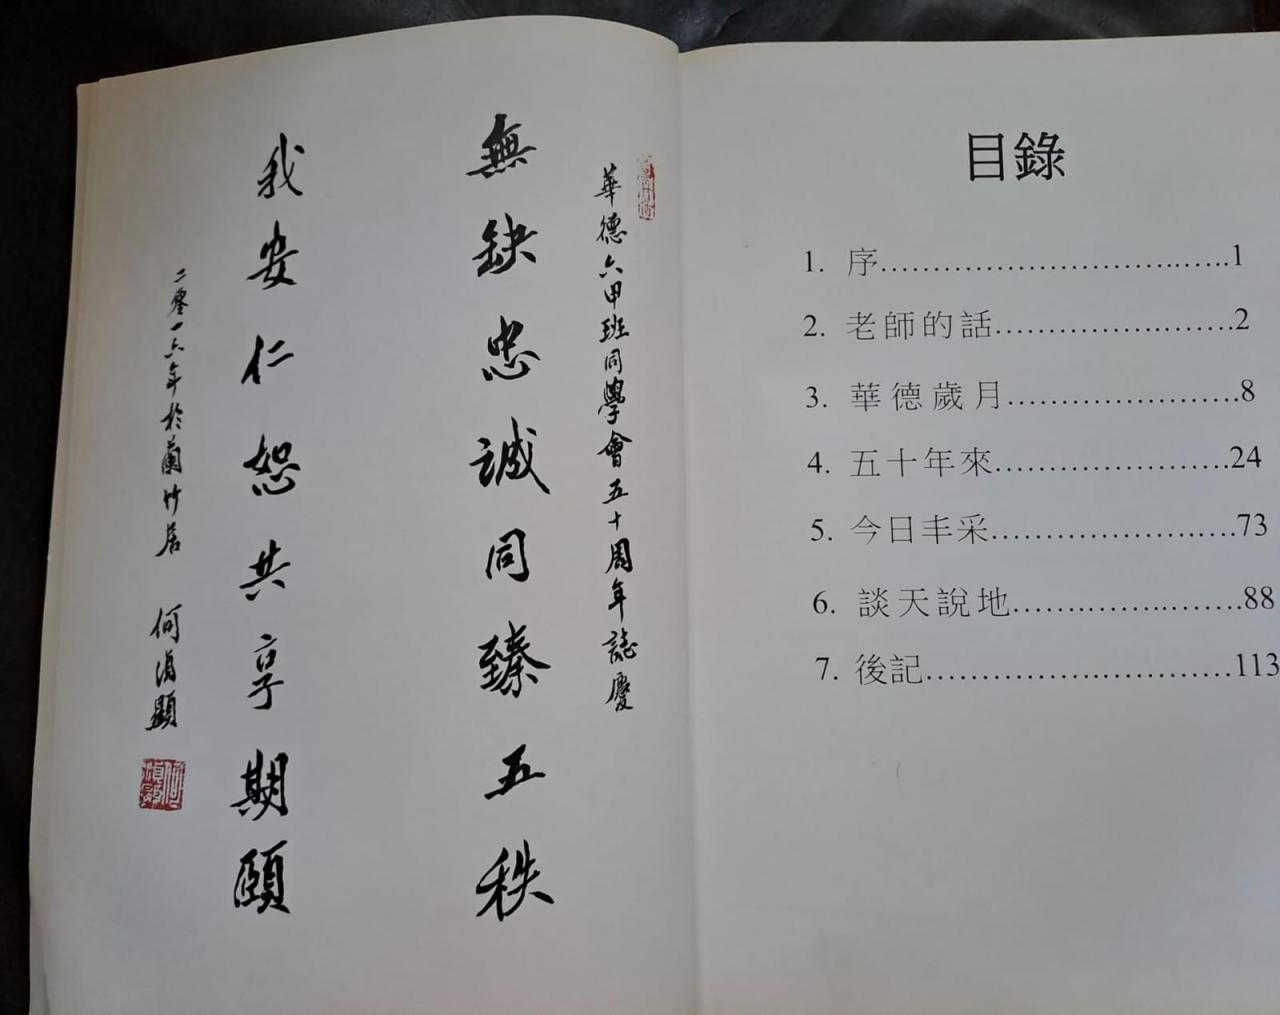 華德六甲班同學會五十周年誌慶
無缺忠誠同臻五秩
我安仁恕共享期頤
二零一六年於蘭竹居 何
目錄
1. 序................................1
2. 老師的話.......................2
3. 華德歲月......................8
4. 五十年來......................24
5. 今日丰采.......................73
6. 談天說地......................88
7. 後記.............................113